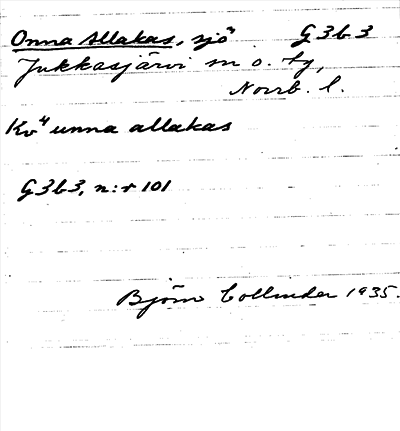 Onna Allakas, sjö G3b3
Jukkasjärvi sn o. tg,
Norrb. l.
Kv" unna allakas
G3b3, n:r 101
Björn Collinder 1935.